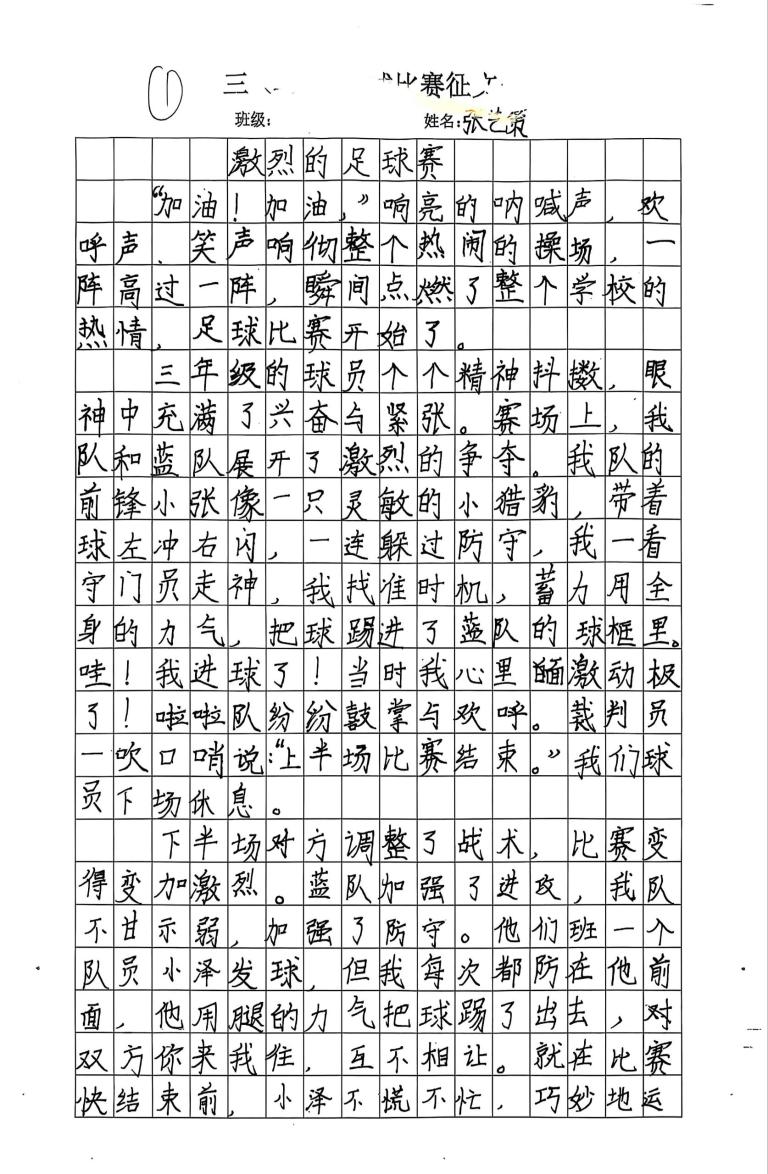 ①
三 比赛征文
班级: 姓名:张艺策
激烈的足球赛
“加油!加油,”响亮的呐喊声,欢
呼声、笑声响彻整个热闹的操场,一
阵高过一阵,瞬间点燃了整个学校的
热情,足球比赛开始了。
三年级的球员个个精神抖擞,眼
神中充满了兴奋与紧张。赛场上,我
队和蓝队展开了激烈的争夺。我队的
前锋小张像一只灵敏的小猎豹,带着
球左冲右闪,一连躲过防守,我一看
守门员走神,我找准时机,蓄力用全
身的力气,把球踢进了蓝队的球框里。
哇!我进球了!当时我心里激动极
了!啦啦队纷纷鼓掌与欢呼。裁判员
一吹口哨说:“上半场比赛结束。”我们球
员下场休息。
下半场对方调整了战术,比赛变
得变加激烈。蓝队加强了进攻,我队
不甘示弱,加强了防守。他们班一个
队员小泽发球,但我每次都防在他前
面,他用腿的力气把球踢了出去,对
双方你来我往,互不相让。就在比赛
快结束前,小泽不慌不忙,巧妙地运